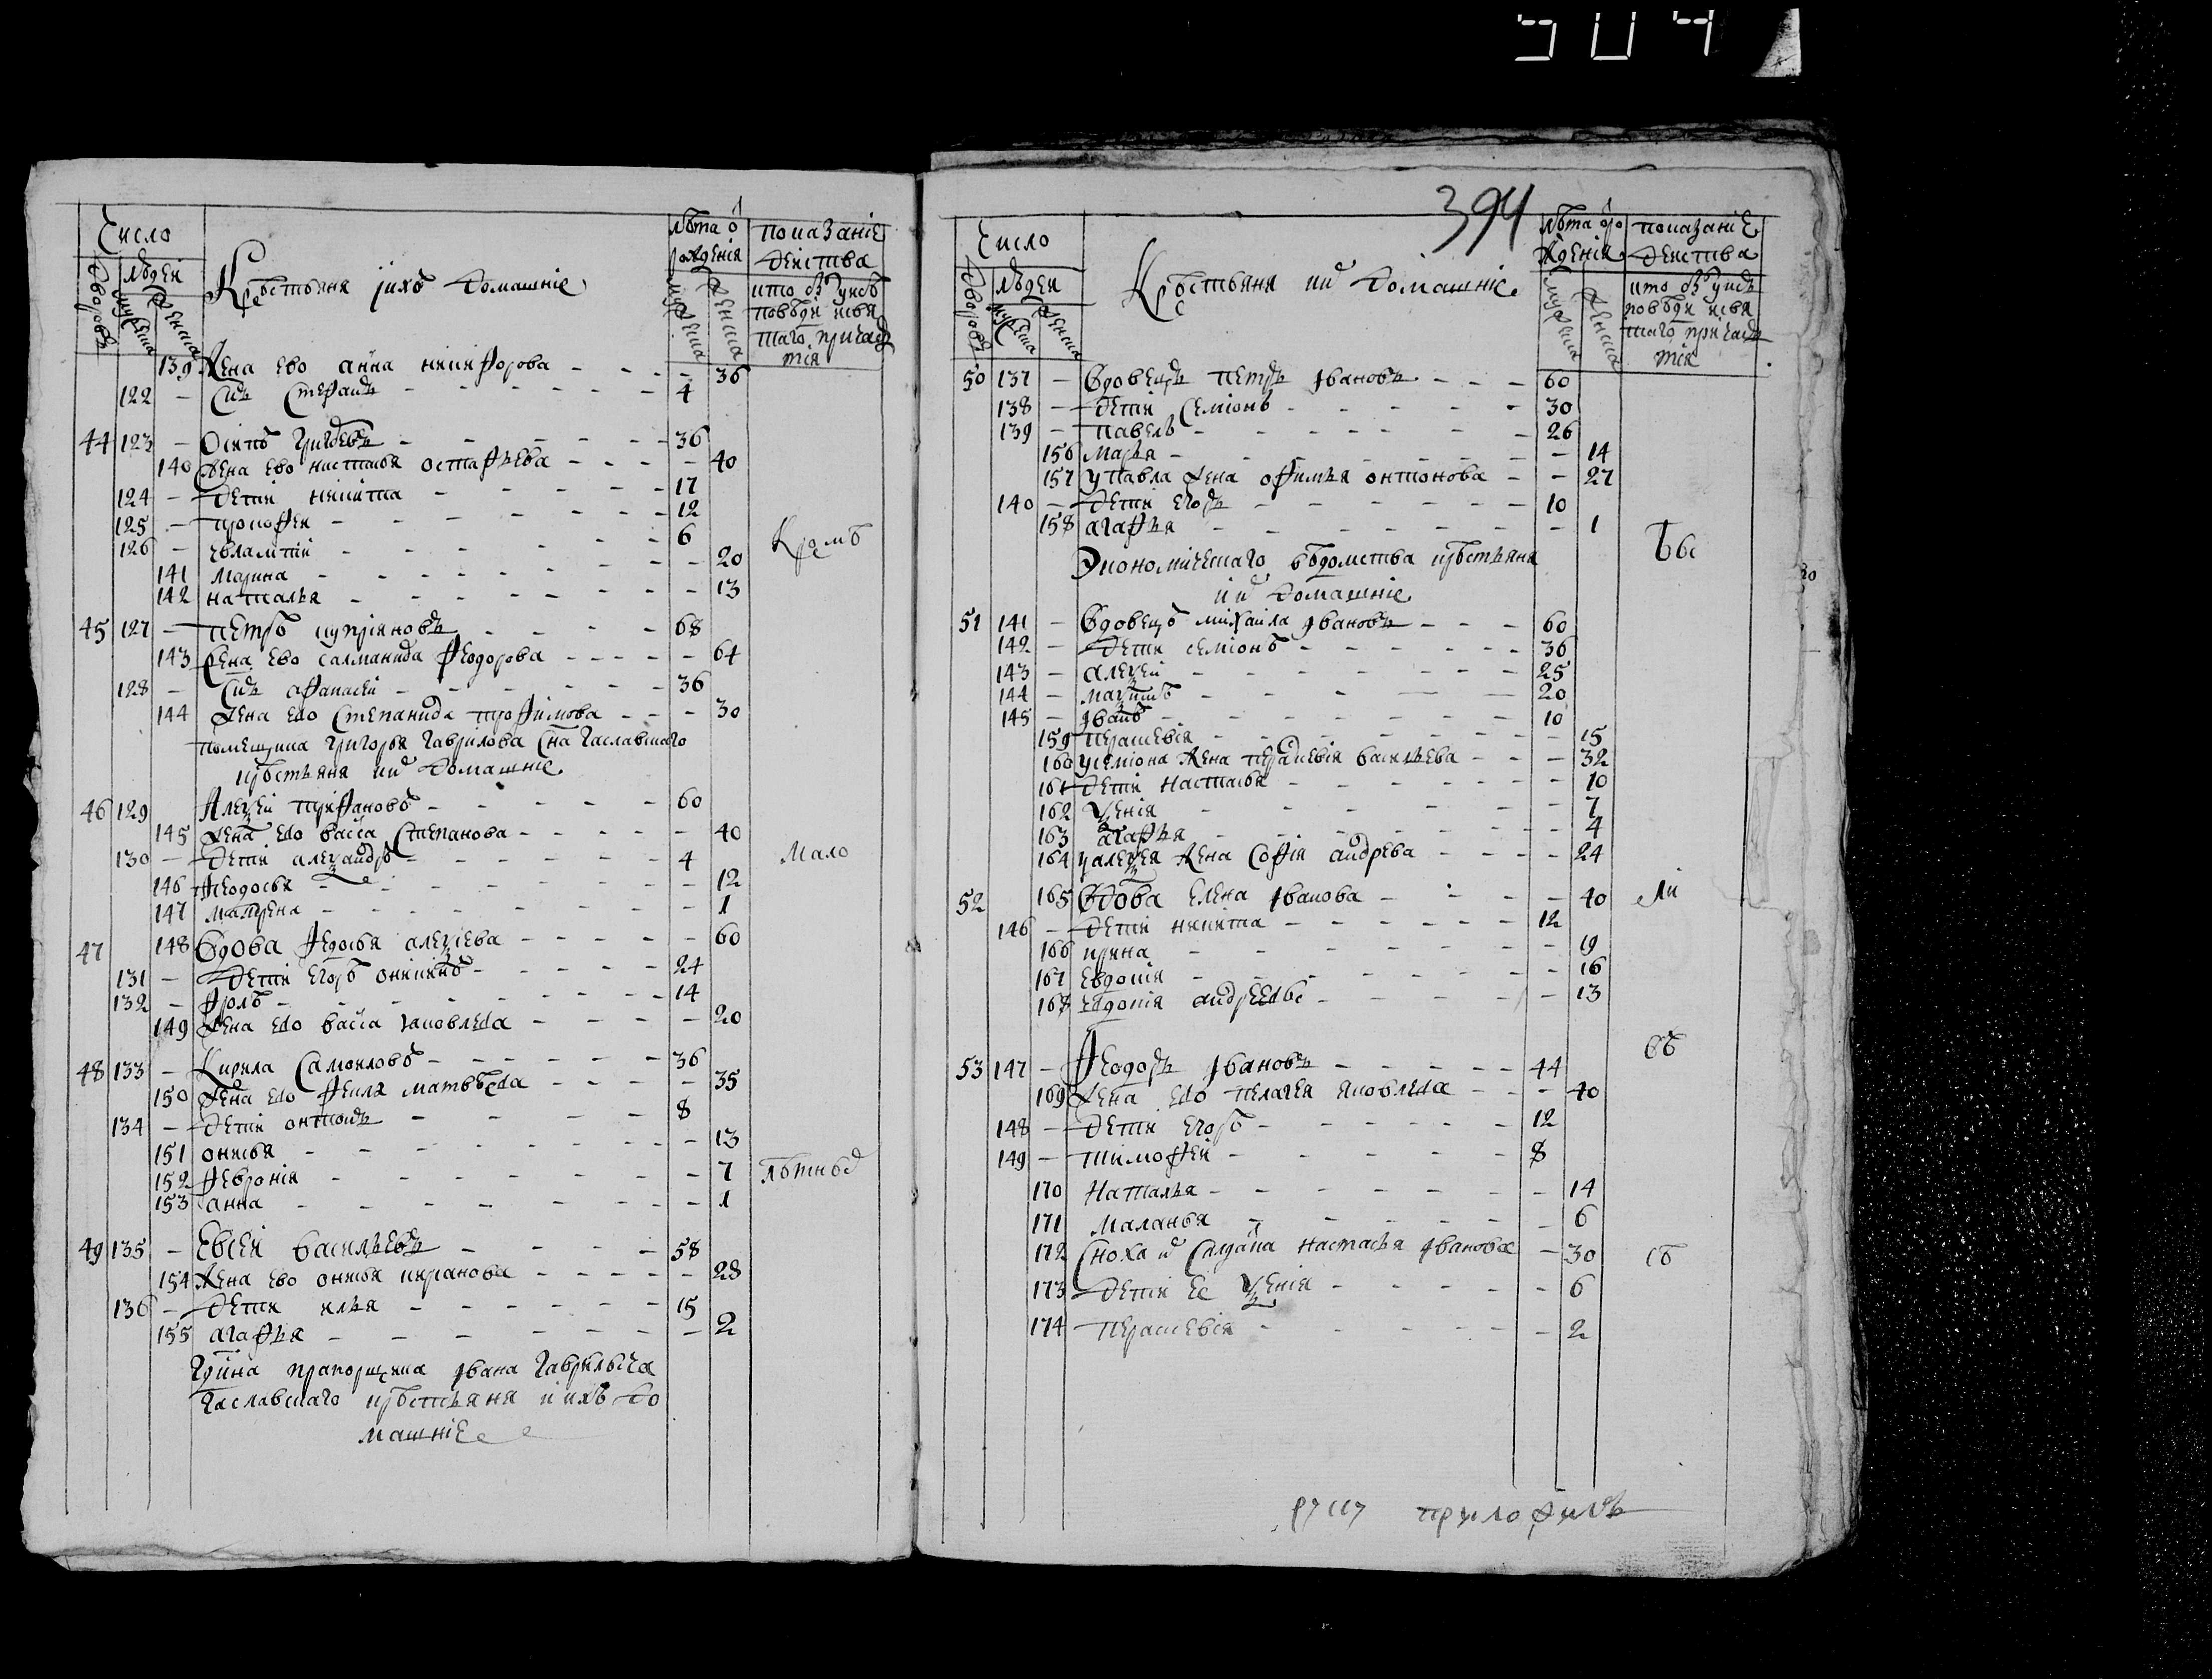 504
число
людей
дворовъ
мужеска
женска
Крестьяня ихъ домашніе
лѣта ѿ
рожденія
мужеска
женска
показаніе
действа
кто бꙋ исѵ
повѣди исвя
таго причас
тія
139 Жена ево анна никифорова - - - - 36
122 - Снъ Стефанъ - - - - - - 4
44 123 - Осипъ Григоревъ - - - - - - 36
140 Жена ево настасья остафьева - - - - 40
124 - дети никита - - - - - 17
125 - прокофеи - - - - - - 12
126 - евлампiи - - - - - - 6
141 Марина - - - - - - - 20
142 наталья - - - - - - - 13
Кромѣ
45 127 - петръ куприяновъ - - - - 68
143 Жена ево саломанида Феодорова - - - - - 64
128 - Снъ афанасеи - - - - - - 36
144 Жена ево Степанида трофимова - - - 30
помещика григорья гаврилова сна гаславскаго
крестьяня ихъ домашніе
46 129 Алеѯеи трифановъ - - - - - 60
145 Жена ево васса Степанова - - - - - 40
130 - дети алеѯандръ - - - - - - 4
Мало
146 Феодосья - - - - - - 12
147 матрена - - - - - - - 1
47 148 Вдова Федосья алеѯіева - - - - - 60
131 - дети Егоръ оникинъ - - - - - 24
132 - фролъ - - - - - - - 14
149 Жена ево васса яковлева - - - - - 20
48 133 - Кирила Самоиловъ - - - - - - 36
150 Жена ево Фекла матвѣева - - - - - 35
134 - дети онтонъ - - - - 8
151 онисья - - - - - - 13
152 Февронія - - - - - - - 7
лѣтныхъ
153 анна - - - - - - - 1
49 135 - Евсеи васильевъ - - - - 58
154 Жена ево онисья кирьанова - - - - - 28
136 - дети илья - - - - - - 15
155 агафья - - - - - - - 2
Гдина прапорщика Ивана Гаврилыча
Гаславскаго крестьяня и ихъ до
машніе
394
число
людеи
дворовъ
мужеска
женска
Крестьяня ихъ домашніе
лѣта ѿ ро
жденія
мужеска
женска
показаніе
действа
кто бꙋ исѵ
повѣди исвя
таго причас
тія
50 137 - Вдовецъ петръ Ивановъ - - - 60
138 - дети Семіонъ - - - - - 30
139 - павелъ - - - - - - - 26
156 Марья - - - - - - - 14
157 у павла Жена офимья онтонова - - 27
140 - дети егоръ - - - - - - 10
158 агафья - - - - - - - 1
Ѣвс
Экономическаго вѣдомства крестьяня
ихъ домашніе
51 141 - Вдовецъ михаила Ивановъ - - - 60
142 - дети семіонъ - - - - - - 36
143 - алеѯеи - - - - - - - 25
144 - маѯимъ - - - - - 20
145 - Иванъ - - - - - - - 10
159 параскевія - - - - - - - 15
160 у семіона Жена параскевія васильева - - - 32
161 дети настасья - - - - - - - 10
162 Ѯенія - - - - - - - 7
163 агафья - - - - - - - 4
164 у алеѯея Жена Софія андрева - - - - 24
52 165 Вдова Елена Иванова - - - - 40
ли
146 - дети никита - - - - - - 12
166 ирина - - - - - - - 19
167 Евдокія - - - - - - - 16
168 евдокія андреева - - - - - 13
сѣ
53 147 - Феодоръ Ивановъ - - - - - 44
169 Жена ево пелагея яковлева - - - 40
148 - дети егоръ - - - - - - 12
149 - тимофеи - - - - - - 8
170 Наталья - - - - - - - 14
171 Маланья - - - - - - 6
172 Сноха их Салдатка настасья Иванова - 30
сѣ
173 дети ее Ѯенія - - - - - 6
174 параскевія - - - - - - 2
приложилъ